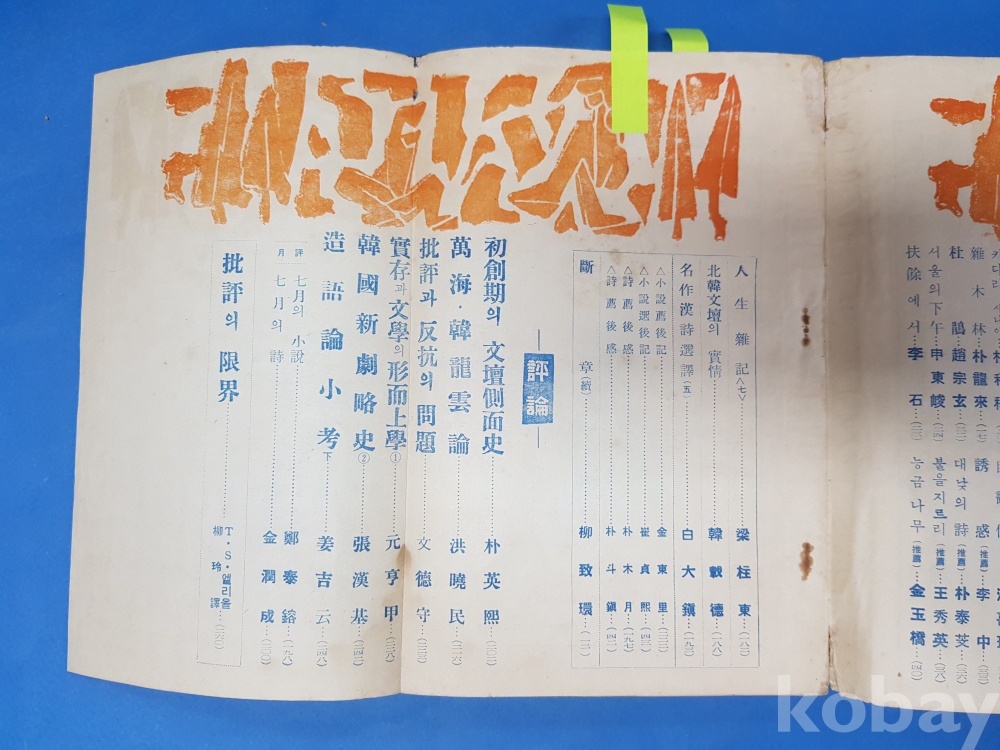 雜木林
朴龍來
杜鵑
趙宗玄
서울의下午
申東峻
扶餘에서
李石
誘惑(推薦)
李中
대낮의詩(推薦)
朴泰芠
불을지르리(推薦)
王秀英
능금나무(推薦)
金玉橋
人生雜記<七>
梁柱東
北韓文壇의實情
韓載德
名作漢詩選譯(五)
白大鎭
△小說薦後記
金東里
△小說選後記
崔貞熙
△詩薦後感
朴木月
△詩薦後感
朴斗鎭
斷章(續)
柳致環
評論
初創期의文壇側面史
朴英熙
萬海·韓龍雲論
洪曉民
批評과反抗의問題
文德守
實存과文學의形而上學①
元亨甲
韓國新劇略史②
張漢基
造語論小考下
姜吉云
月評
七月의小說
鄭泰鎔
七月의詩
金潤成
批評의限界
T·S·엘리올
柳玲譯
kobay